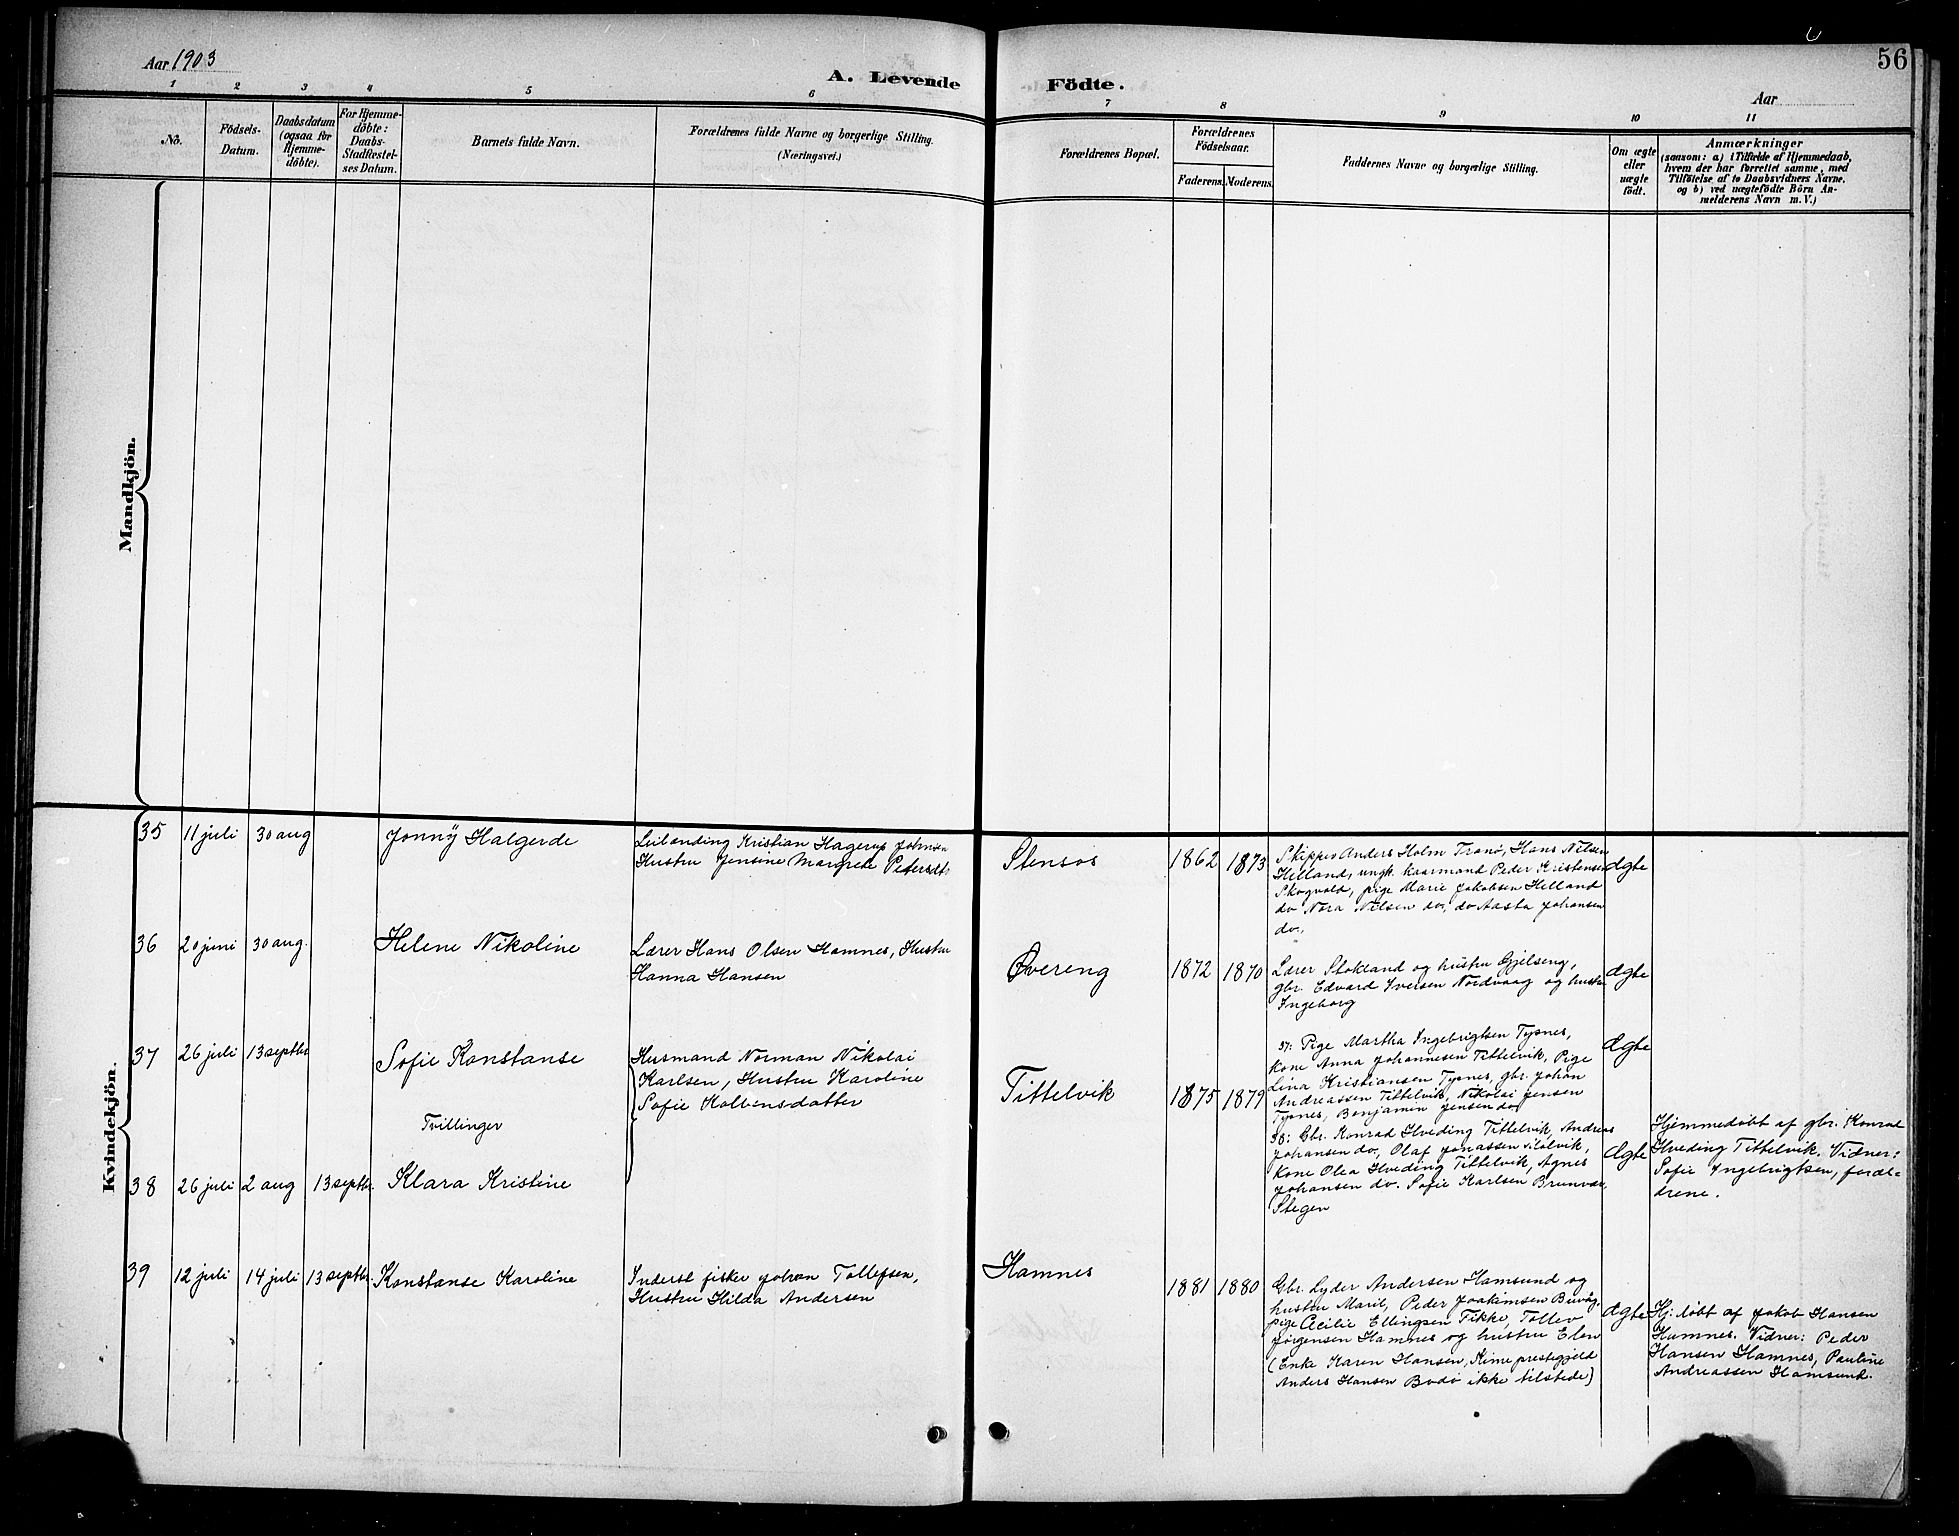 Aar 1903
A. Levende Födte.
56
Aar
1 2 3 4 5 6 7 8 9 10 11
No.
Födsels-
Datum.
Daabsdatum
(ogsaa for
Hjemme-
döbte).
For Hjemme-
döbte:
Daabs-
Stadfæstel-
ses Datum.
Barnets fulde Navn.
Forældrenes fulde Navne og borgerlige Stilling.
(Næringsvei.)
Forældrenes Bopæl.
Forældrenes
Födselsaar.
Faderens. Moderens.
Faddernes Navne og borgerlige Stilling.
Om ægte
eller
uægte
födt.
Anmærkninger
(saasom: a) i Tilfælde af Hjemmedaab,
hvem der har forrettet samme, med
Tilföielse af to Daabsvidners Navne.
og b) ved uægtefödte Börn An-
melderens Navn m. V.)
Mandkjön.
Kvindekjön.
35 11 juli 30 aug
Jonny Halgerde
Leilending Kristian Hagerup Johnsen
Hustru Jensine Margrete Pedersdt.
Stensos
1862 1873
Skipper Anders Holm Tranö, Hans Nilsen
Helland, ungk. kaarmand Peder Kristensen
Skogvold, pige Marie Jakobsen Helland
do Nora Nilsen do, do Aasta Johansen
do.
ægte
36 20 juni 30 aug.
Helene Nikoline
Lærer Hans Olsen Hamnes, Hustru
Hanna Hansen
Øvereng
1872 1870
Lærer Stokland og hustru Gjelseng,
gbr. Edvard Iversen Nordvaag og hustru
Ingeborg
ægte
37 26 juli 13 septbr
Sofie Konstanse
Husmand Norman Nikolai
Karlsen, Hustru Karoline
Sofie Kolbensdatter
Tittelvik
1875 1879
37: Pige Martha Ingebrigtsen Tysnes,
kone Anna Johannesen Tittelvik, Pige
Lina Kristiansen Tysnes, gbr. Johan
Andreassen Tittelvik, Nikolai Jensen
Tysnes, Benjamin Jensen do
ægte
Tvillinger
38 26 juli 2 aug 13 septbr.
Klara Kristine
38: Gbr. Konrad Hveding Tittelvik, Andreas
Johansen do, Olaf Jonassen
Kone Olea Hveding Tittelvik, Agnes
Johansen do. Sofie Karlsen Brunvær,
Stegen
ægte
Hjemmedøbt af gbr. Konrad
Hveding Tittelvik. Vidner:
Sofie Ingebrigtsen, foræl-
drene.
39 12 juli 14 juli 13 septbr.
Konstanse Karoline
Inderst fisker Johan Tollefsen,
Hustru Hilda Andersen
Hamnes
1881 1880
Gbr. Lyder Andersen Hamsund og
hustru Marit, Peder Joakimsen Buvåg,
pige Cecilie Ellingsen Fikke, Tollev
Jørgensen Hamnes og hustru Elen
(Enke Karen Hansen, prestegjeld
Anders Hansen Bodø ikke tilstede)
ægte
Hj: døbt af Jakob Hansen
Hamnes. Vidner: Peder
Hansen Hamnes, Pauline
Andreassen Hamsund.